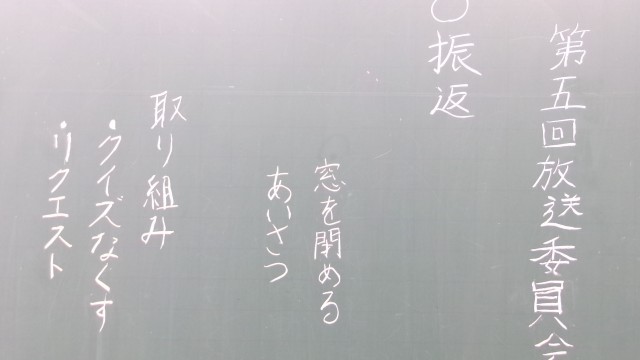 第五回放送委員会
○振返
窓を閉める
あいさつ
取り組み
・クイズなくす
・リクエスト